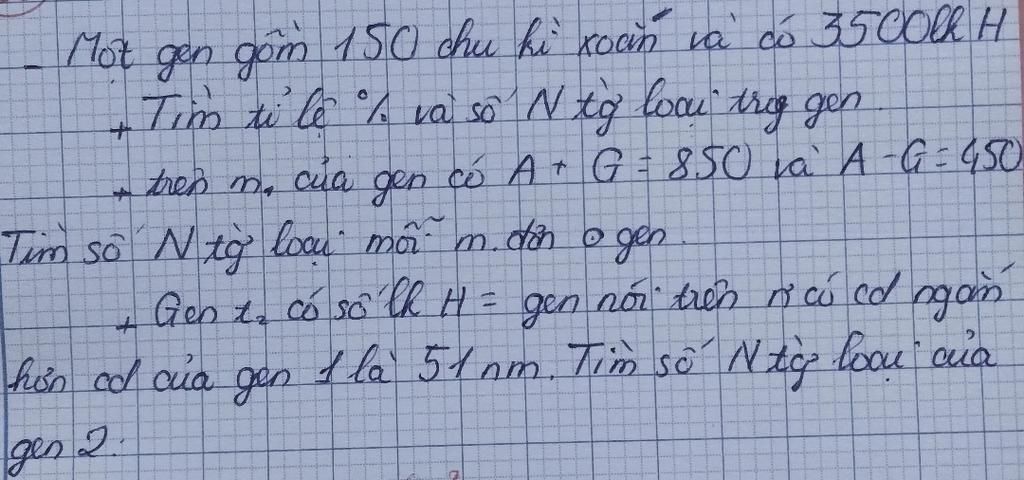 - Một gen gồm 150 chu kì xoắn và có 3500lk H
+ Tìm tỉ lệ % và số N từg loại trg gen.
+ trên m1 của gen có A + G = 850 và A - G = 450
Tìm số N từg loại mỗi m. đơn ở gen.
+ Gen t2 có số lk H = gen nói trên n' có cd ngắn
hơn cd của gen 1 là 51nm. Tìm số N từg loại của
gen 2.